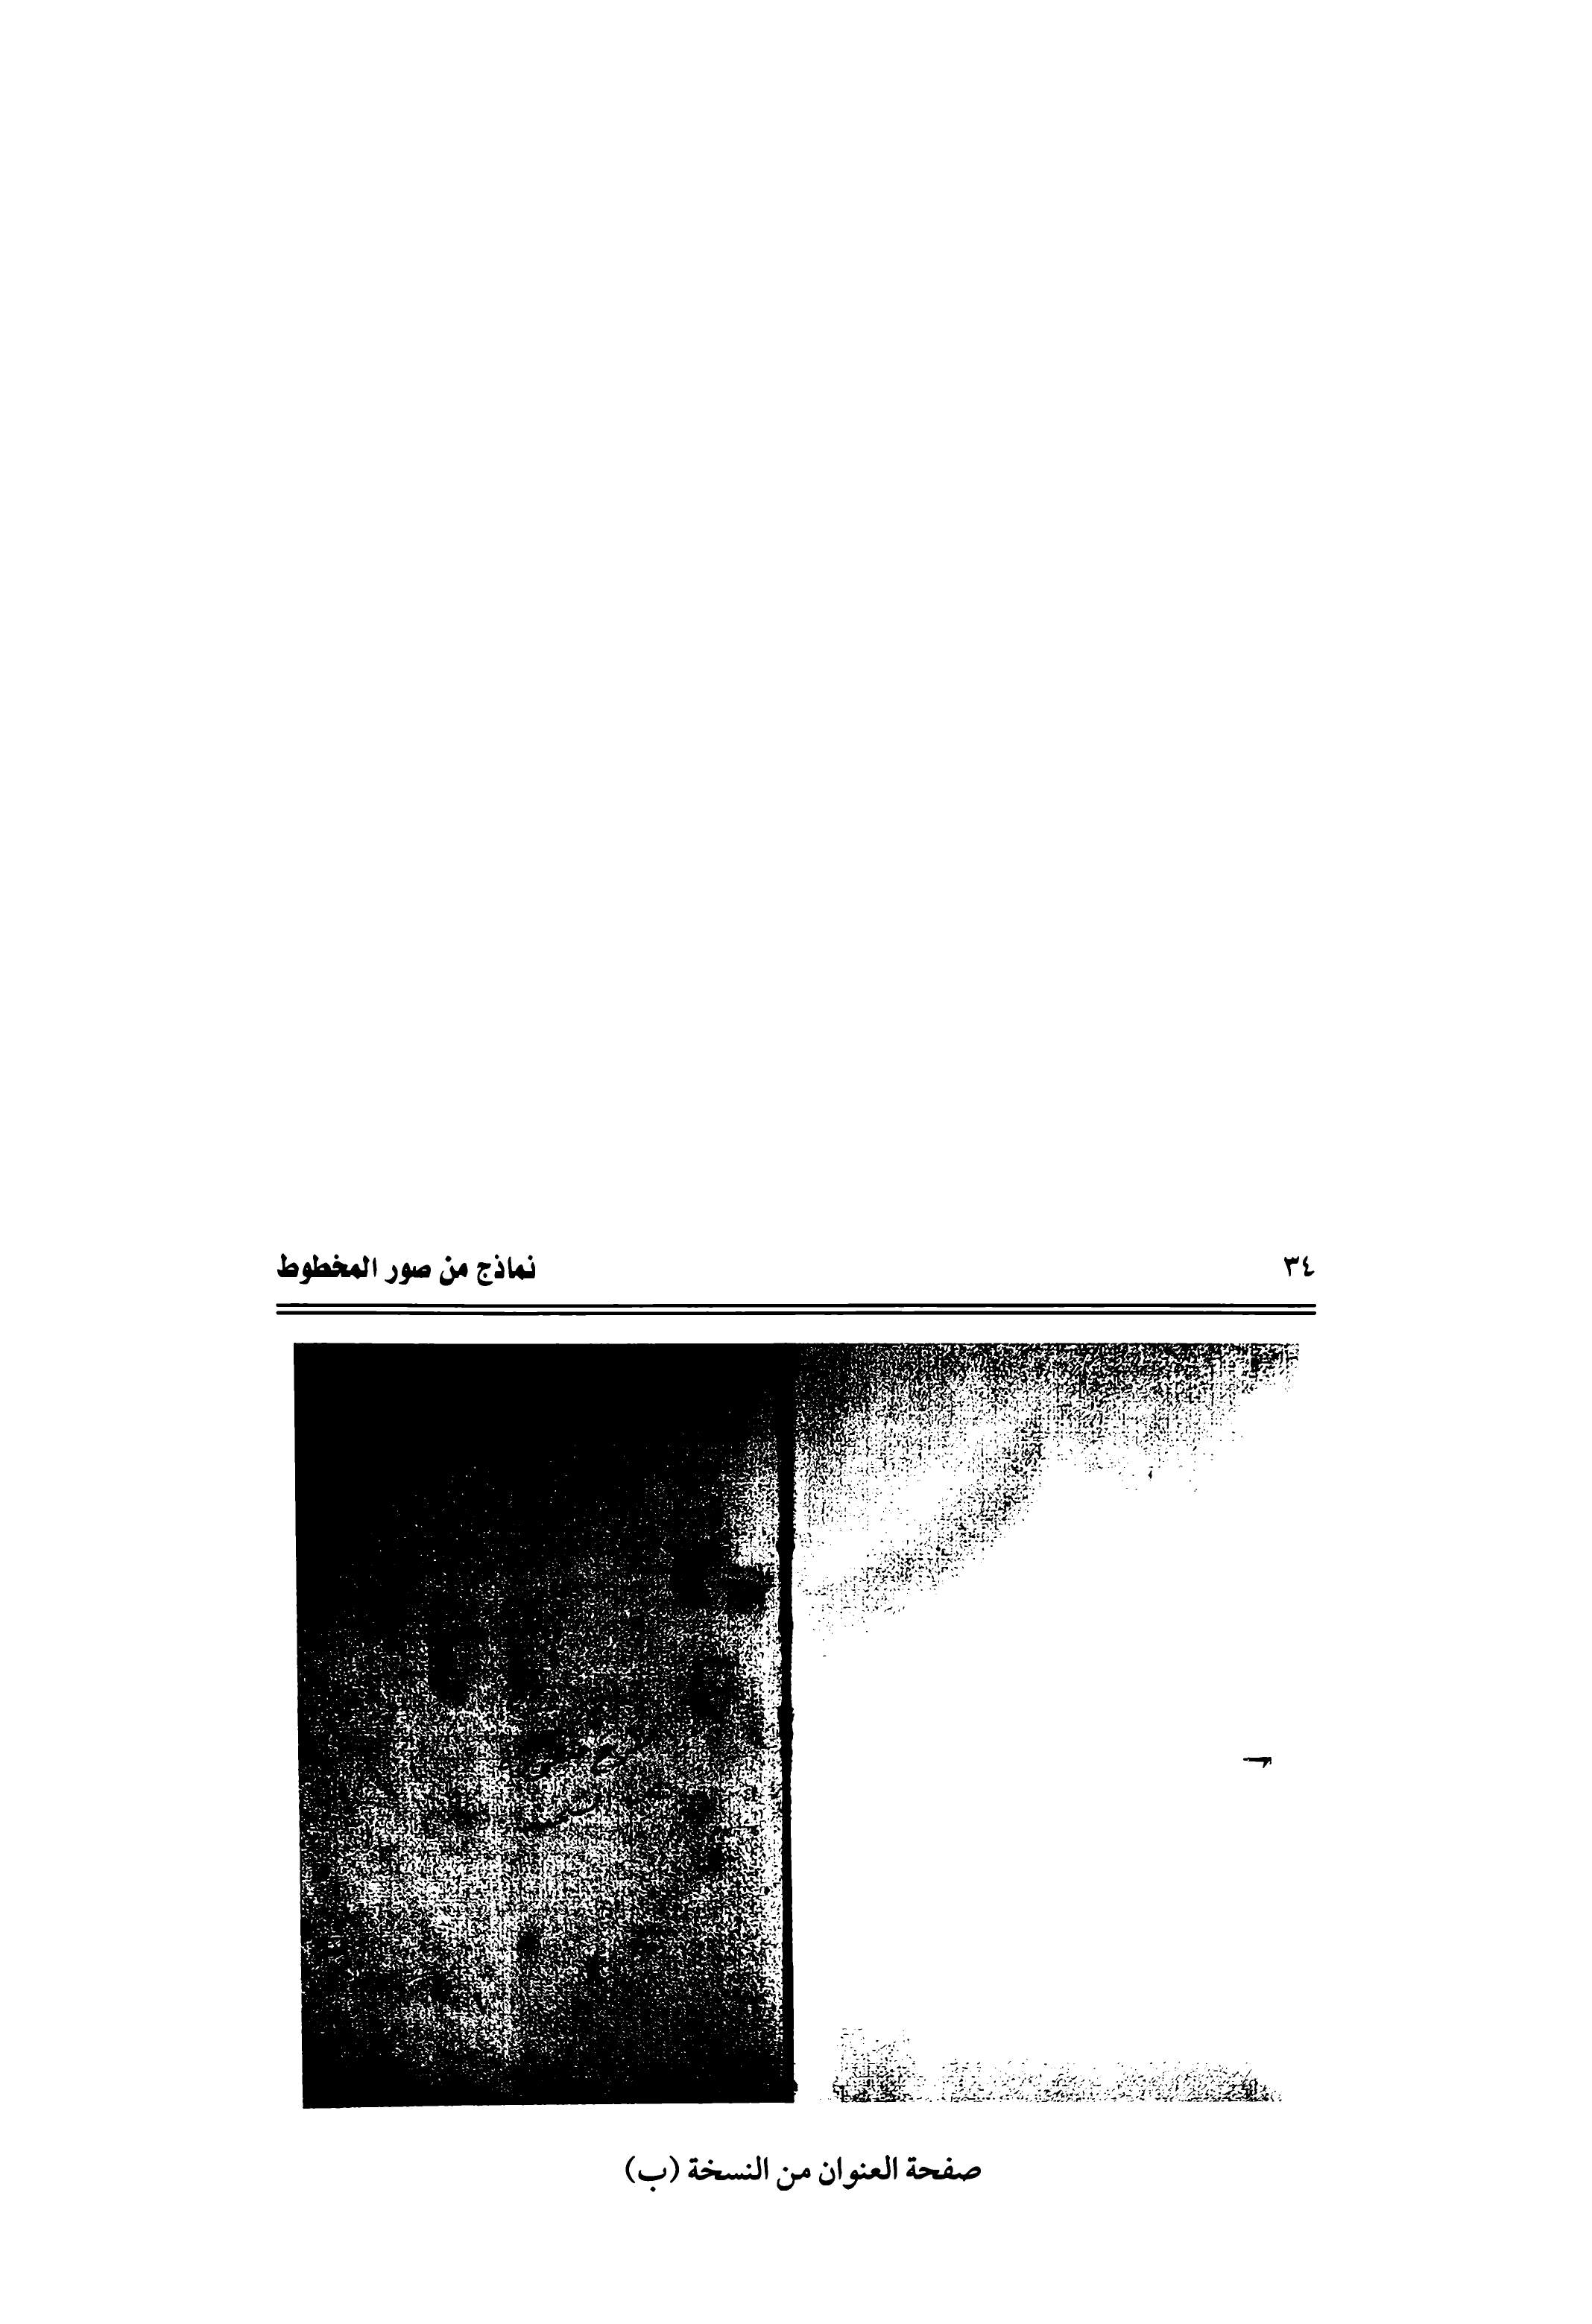 ٣٤ نماذج من صور المخطوط
صفحة العنوان من النسخة (ب)